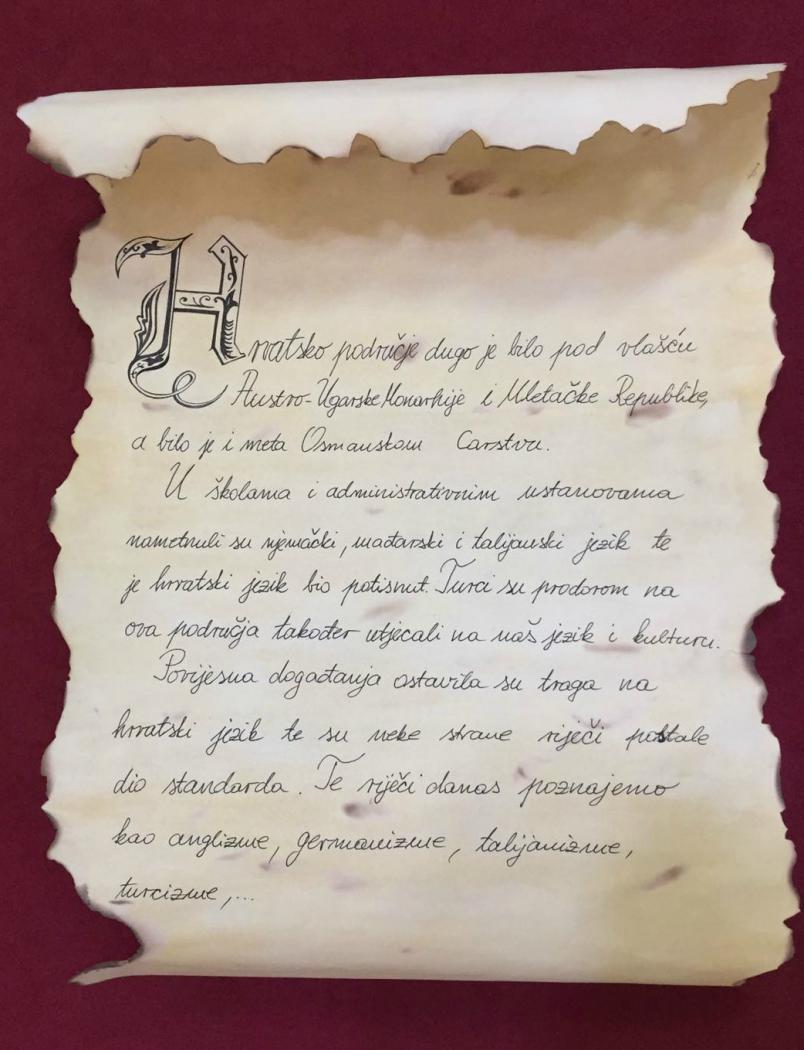 Hrvatsko područje dugo je bilo pod vlašću
Austro-Ugarske Monarhije i Mletačke Republike,
a bilo je i meta Osmanskom Carstvu.
U školama i administrativnim ustanovama
nametnuli su njemački, mađarski i talijanski jezik te
je hrvatski jezik bio potisnut. Turci su prodorom na
ova područja također utjecali na naš jezik i kulturu.
Povijesna događanja ostavila su traga na
hrvatski jezik te su neke strane riječi postale
dio standarda. Te riječi danas poznajemo
kao anglizme, germanizme, talijanizme,
turcizme,...